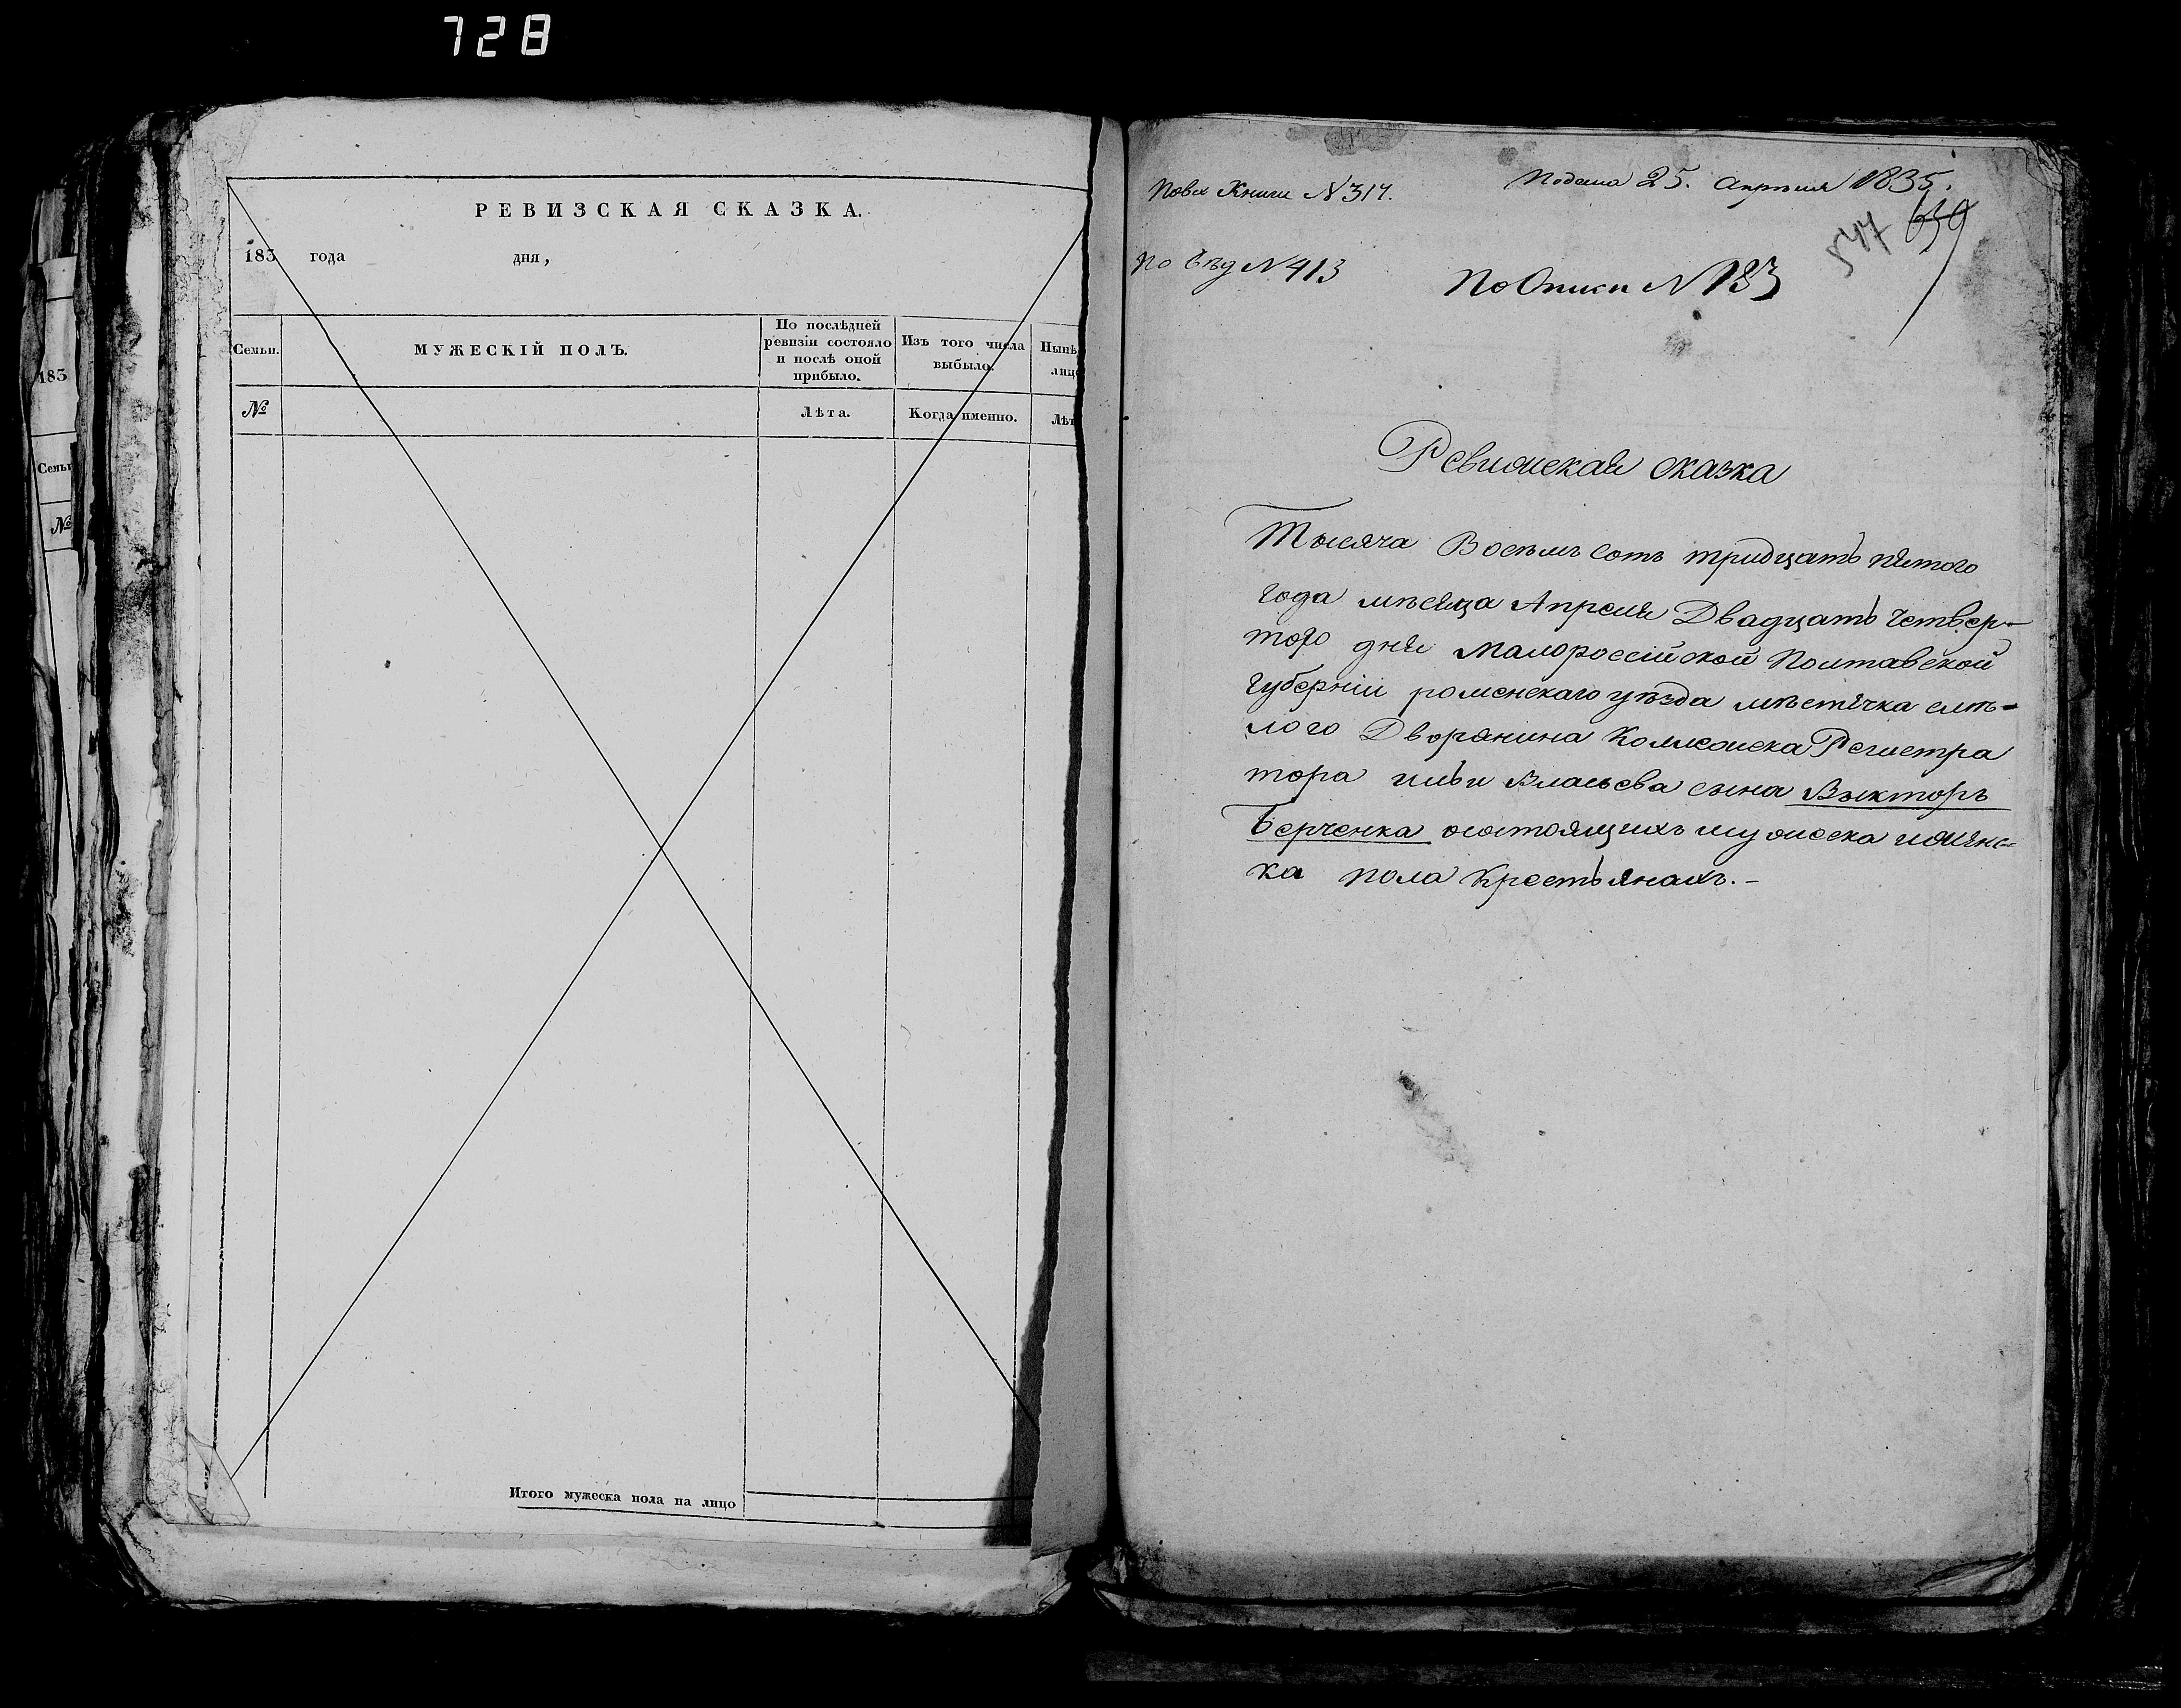 728
183
Семьи
№
РЕВИЗСКАЯ СКАЗКА.
183 года дня,
Семьи.
МУЖЕСКІЙ ПОЛЪ.
По послѣдней ревизіи состояло и послѣ оной прибыло.
Изъ того числа выбыло.
Нынѣ лицо
№
Лѣта.
Когда именно.
Лѣт
Итого мужеска пола на лицо
Книги № 317.
Подана 25. Апрѣля 1835.
639
547
По вѣд № 413
По Описи № 183
Ревижская сказка
Тысяча Восемъ сотъ тридцать пятого
года мѣсяца Апреля Двадцать Четвер-
того дня Малороссійской Полтавской
губерніи роменского уѣзда мѣстечка смѣ-
лого Дворянина Колежска Регистра
тора Власьева сына
ка пола крестьянахъ.-